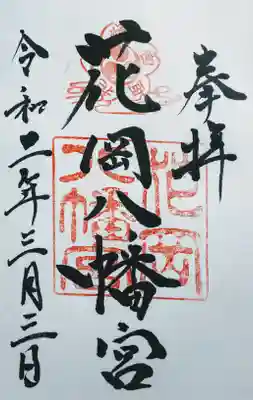 奉拝
花岡八幡宮
令和二年三月三日
花岡八幡宮